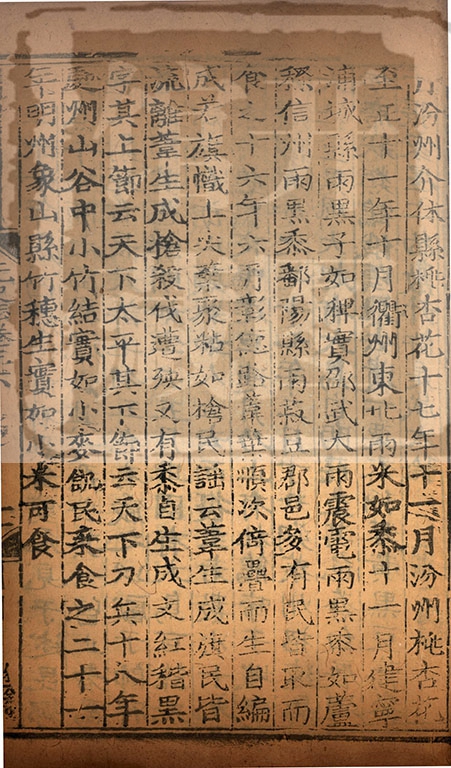 月汾州介休縣桃杏花十七年十一月汾州桃杏花
至正十一年十月衢州東北雨米如黍十一月建寧
浦城縣雨黑子如稗實邵武大雨震電雨黑黍如蘆
穄信州雨黑黍鄱陽縣雨菽豆郡邑多有民皆取而
食之十六年六月彰德路葦葉順次倚疊而生自編
成若旗幟上尖葉聚粘如槍民謡云葦生成旗民皆
流離葦生成槍殺伐遭殃又有黍自生成文紅稭黑
字其上節云天下太平其下節云天下刀兵十八年
處州山谷中小竹結實如小麥飢民采食之二十一
年明州象山縣竹穗生實如小米可食